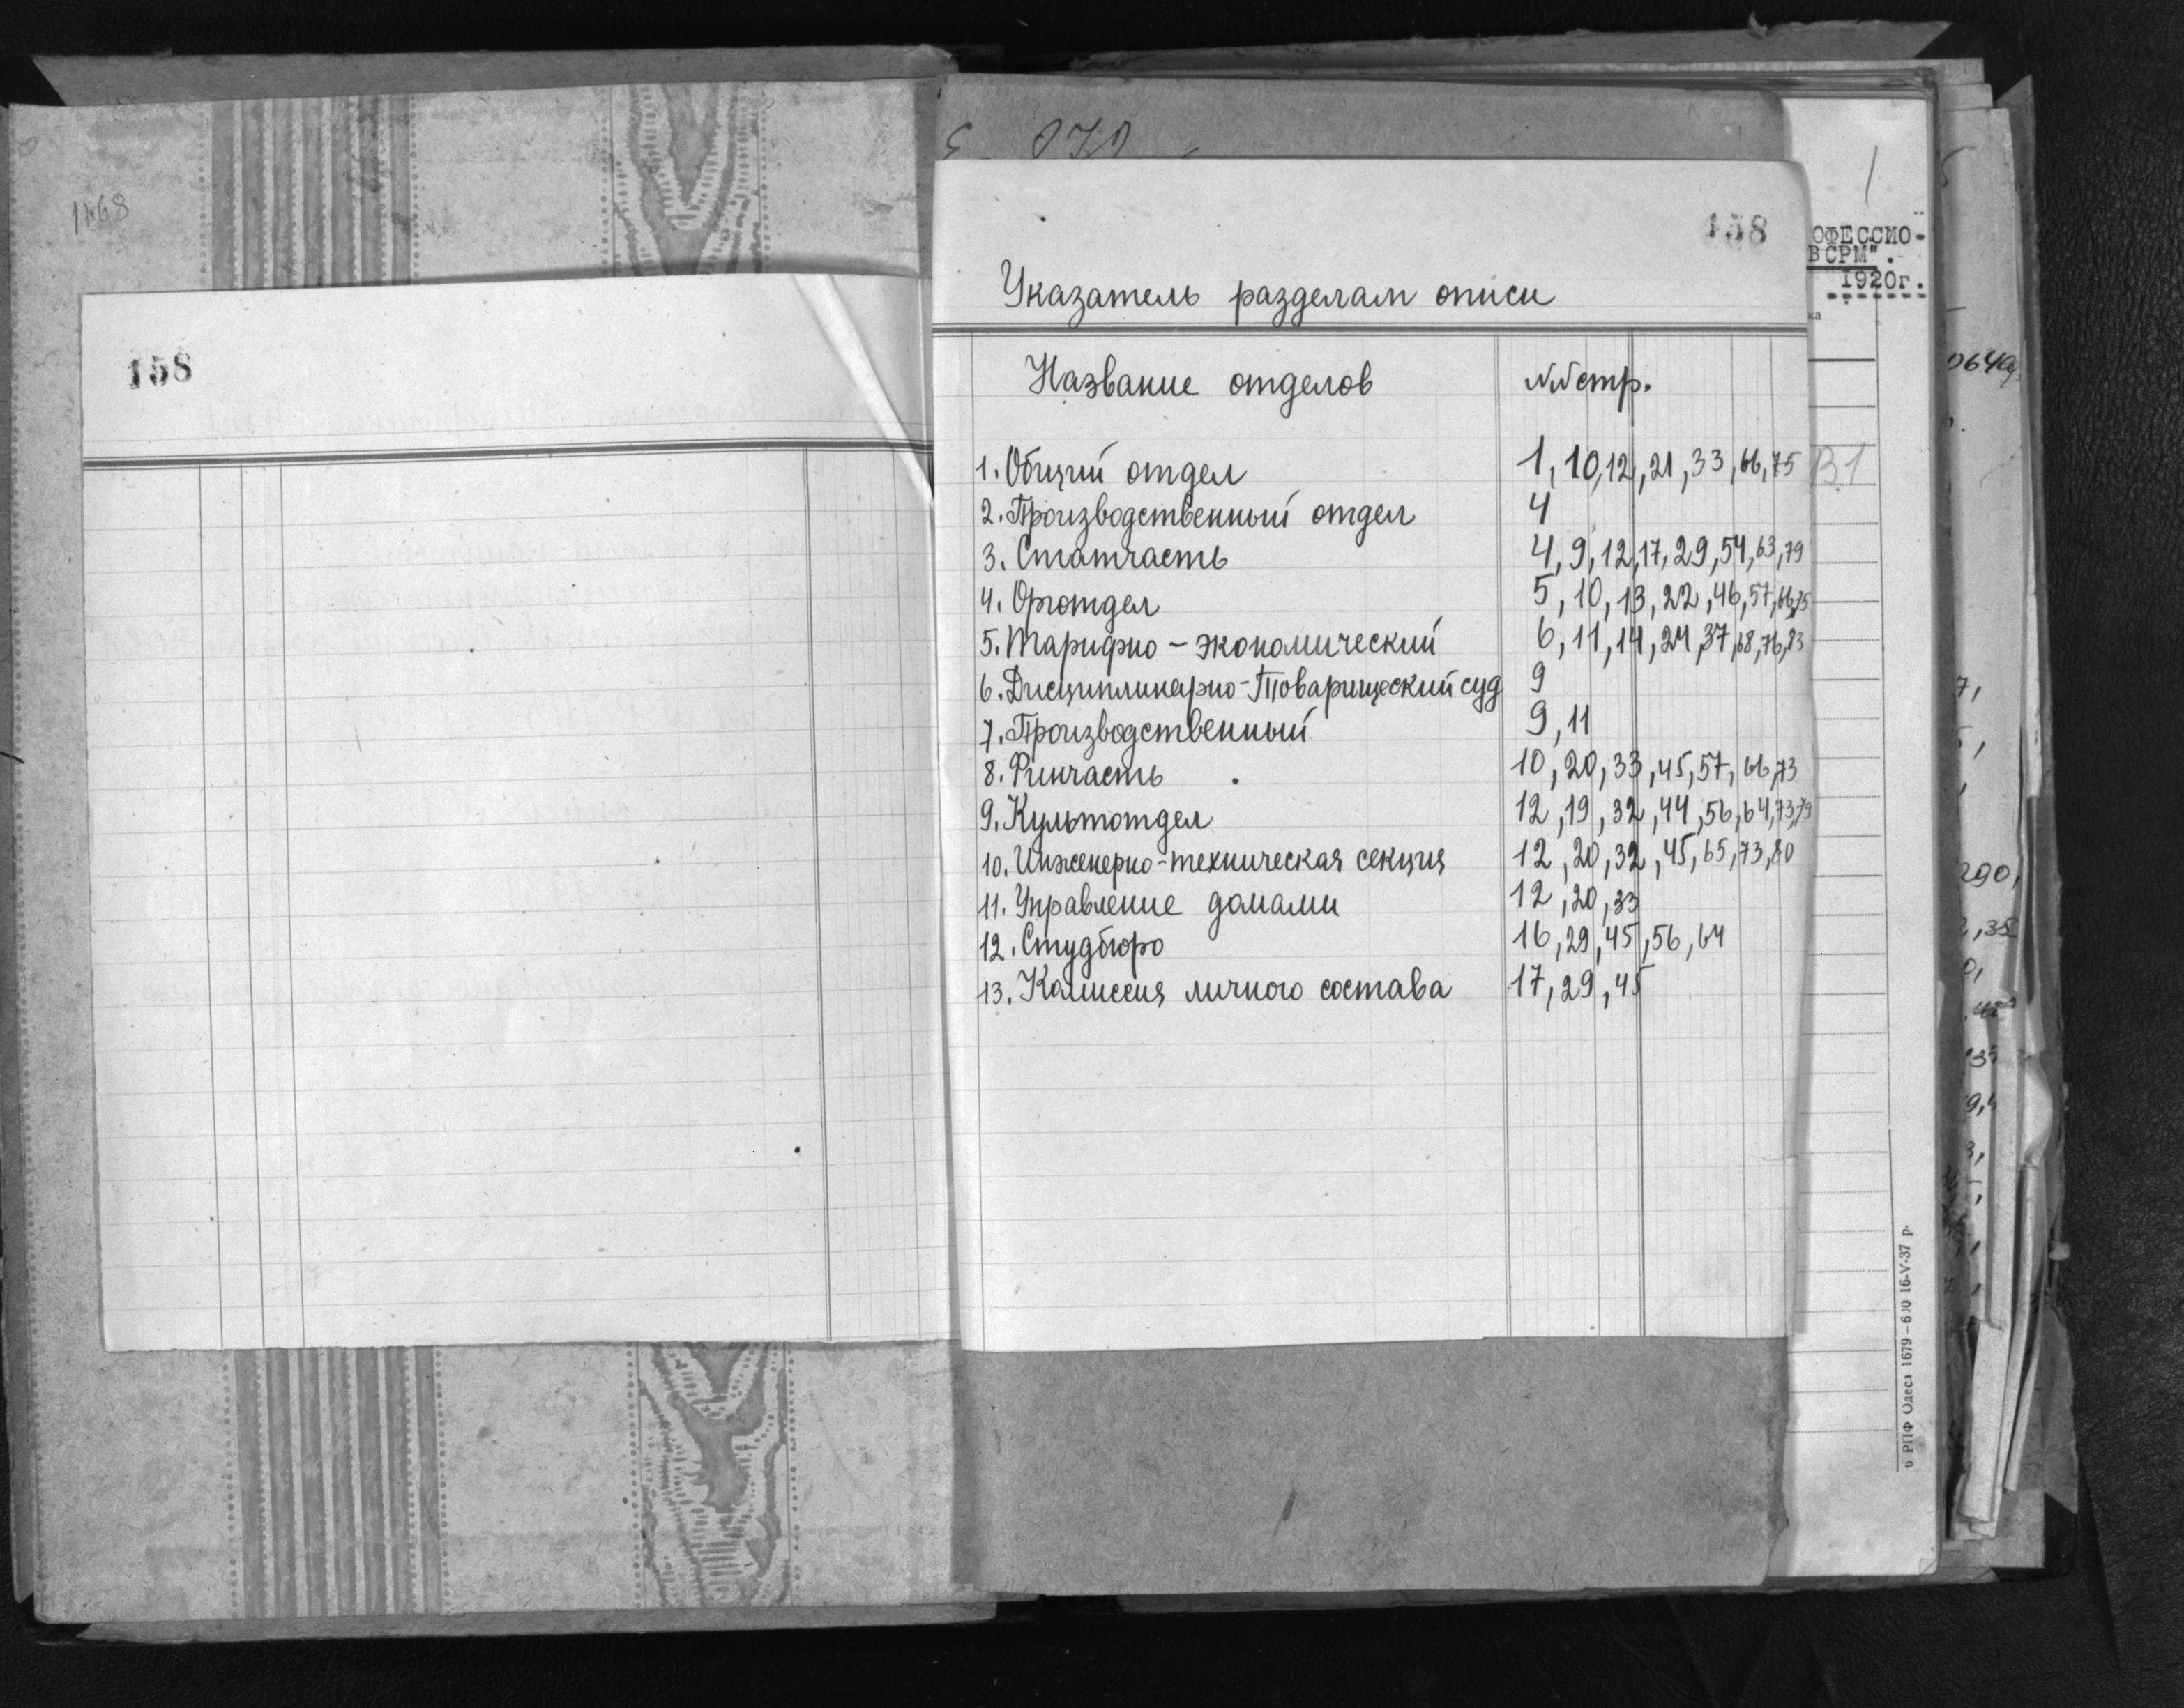 1168
158
158
Указатель разделам описи
Название отделов №№ стр.
1. Общий отдел 1, 10, 12, 21, 33, 66, 75
2. Производственный отдел 4
3. Статчасть 4, 9, 12, 17, 29, 54, 63, 79
4. Орготдел 5, 10, 13, 22, 46, 57, 66, 75
5. Тарифно-экономический 6, 11, 14, 24, 37, 68, 76, 83
6. Дисциплинарно-Товарищеский суд 9
7. Производственный 9, 11
8. Финчасть 10, 20, 33, 45, 57, 66, 73
9. Культотдел 12, 19, 32, 44, 56, 64, 73, 79
10. Инженерно-техническая секция 12, 20, 32, 45, 65, 73, 80
11. Управление домами 12, 20, 33
12. Студбюро 16, 29, 45, 56, 64
13. Комиссия личного состава 17, 29, 45
1
ОФЕССИО-
ВСРМ".
1920г.
1679—600 16-V-37 р.